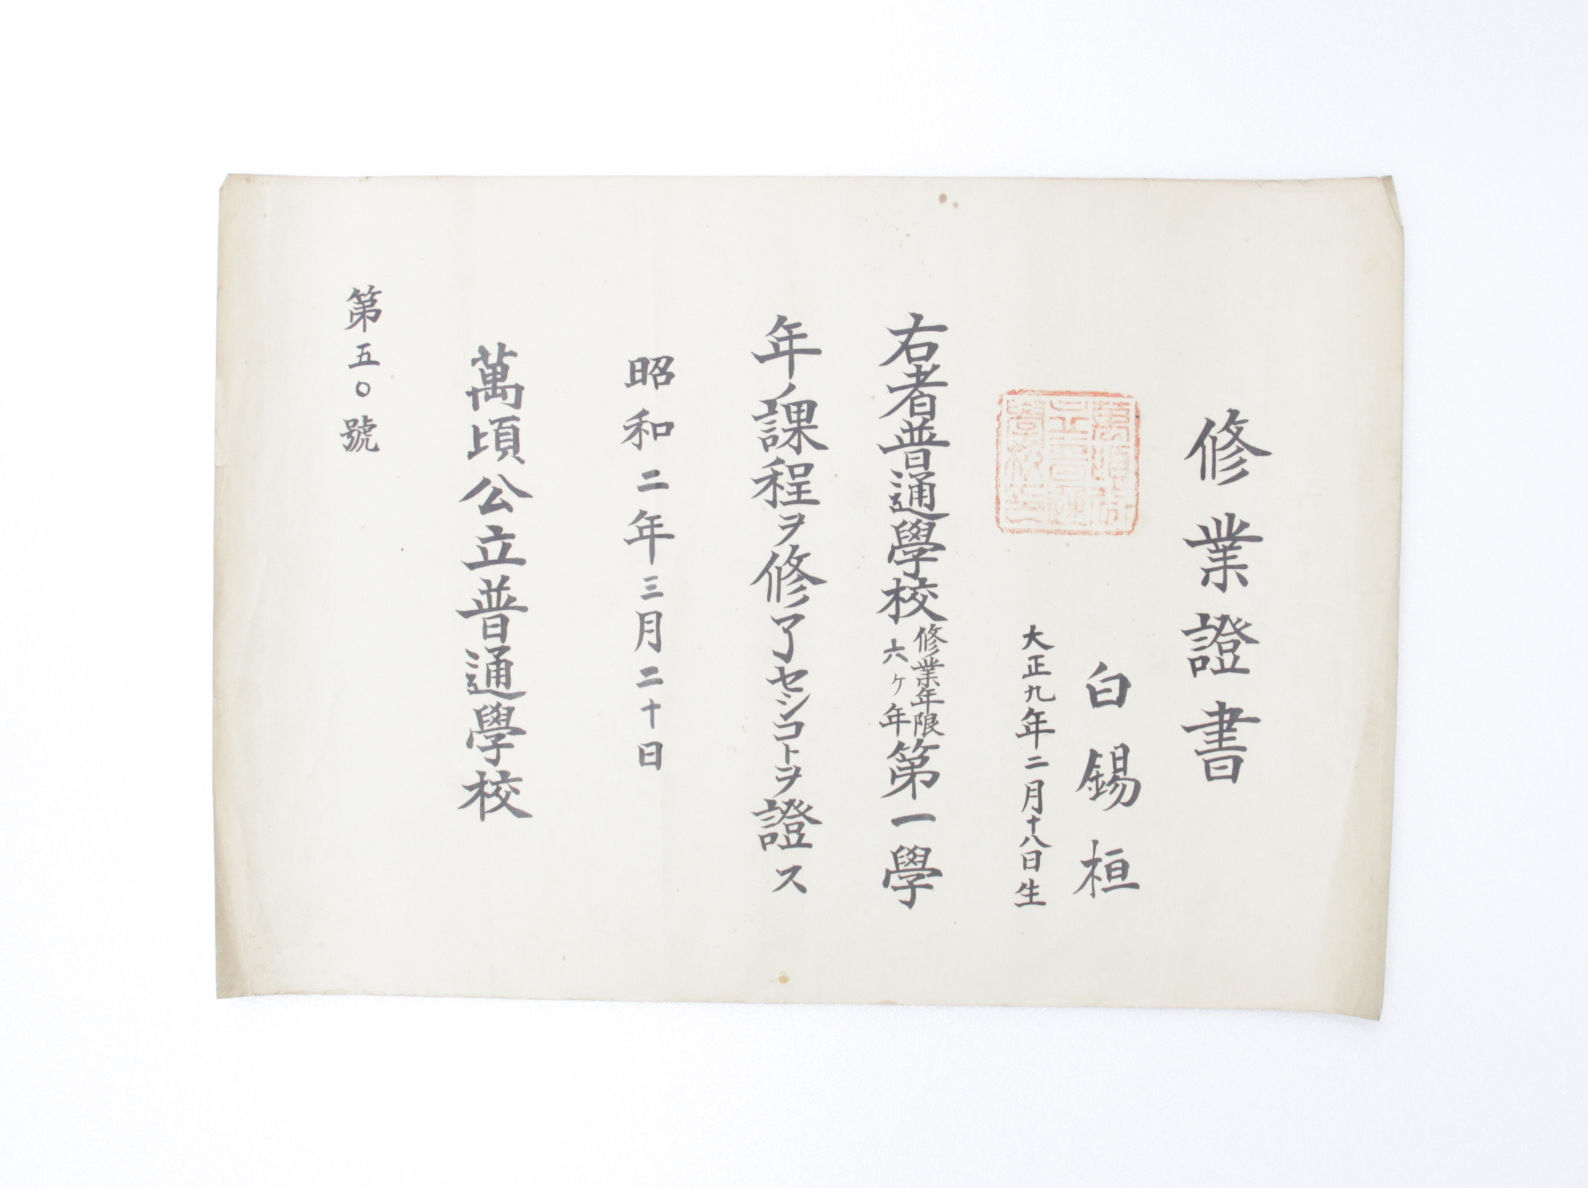 修業證書
白錫桓
大正九年二月十八日生
右者普通學校修業年限六ヶ年第一學
年ノ課程ヲ修了セシコトヲ證ス
昭和二年三月二十日
萬頃公立普通學校
第五〇號